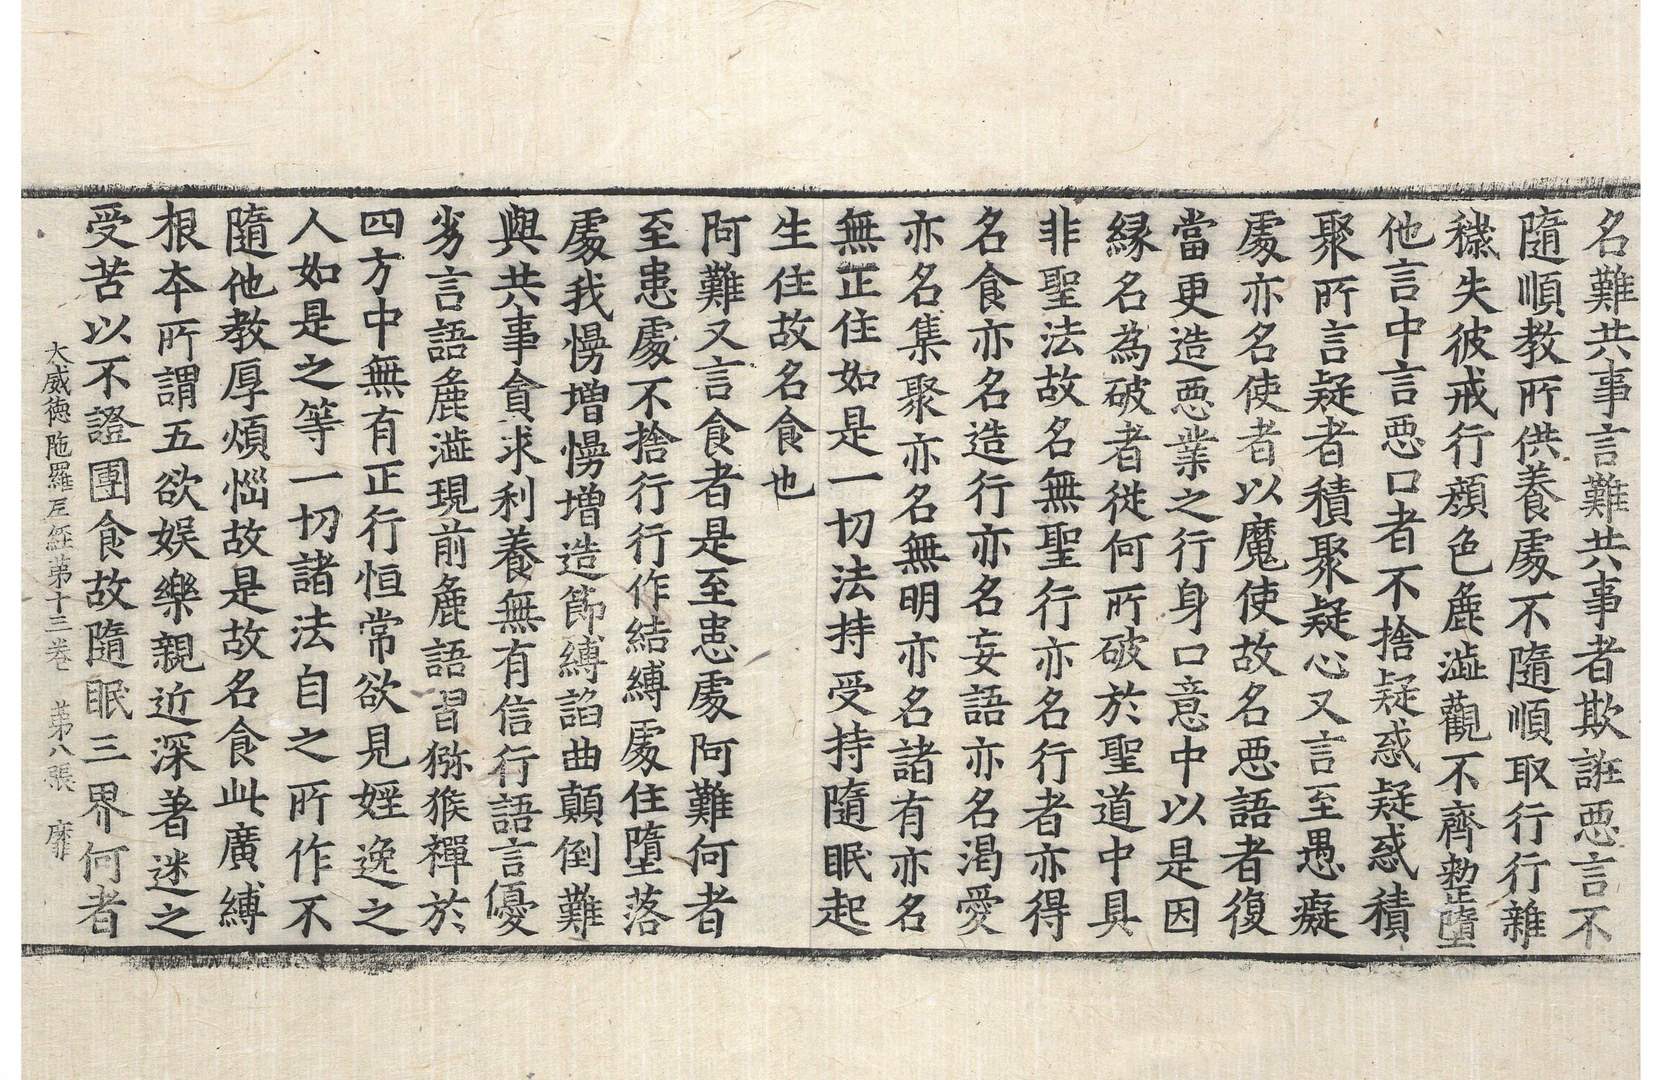 名難共事言難共事者欺誑悪言不
隨順教所供養處不隨順取行行雜
穢失彼戒行顔色麁澁觀不齊整墮
他言中言悪口者不捨疑惑疑惑積
聚所言疑者積聚疑心又言至愚癡
處亦名使者以魔使故名悪語者復
當更造悪業之行身口意中以是因
縁名為破者從何所破於聖道中具
非聖法故名無聖行亦名行者亦得
名食亦名造行亦名妄語亦名渴愛
亦名集聚亦名無明亦名諸有亦名
無正住如是一切法持受持隨眠起
生住故名食也
阿難又言食者是至患處阿難何者
至患處不捨行行作結縛處住墮落
處我慢增慢增造節縛諂曲顛倒難
與共事貪求利養無有信行語言優
劣言語麁澁現前麁語習猕猴禪於
四方中無有正行恒常欲見婬逸之
人如是之等一切諸法自之所作不
隨他教厚煩惱故是故名食此廣縛
根本所謂五欲娱樂親近深著迷之
受苦以不證團食故隨眠三界何者
大威徳陁羅尼經第十三卷 第八張 靡